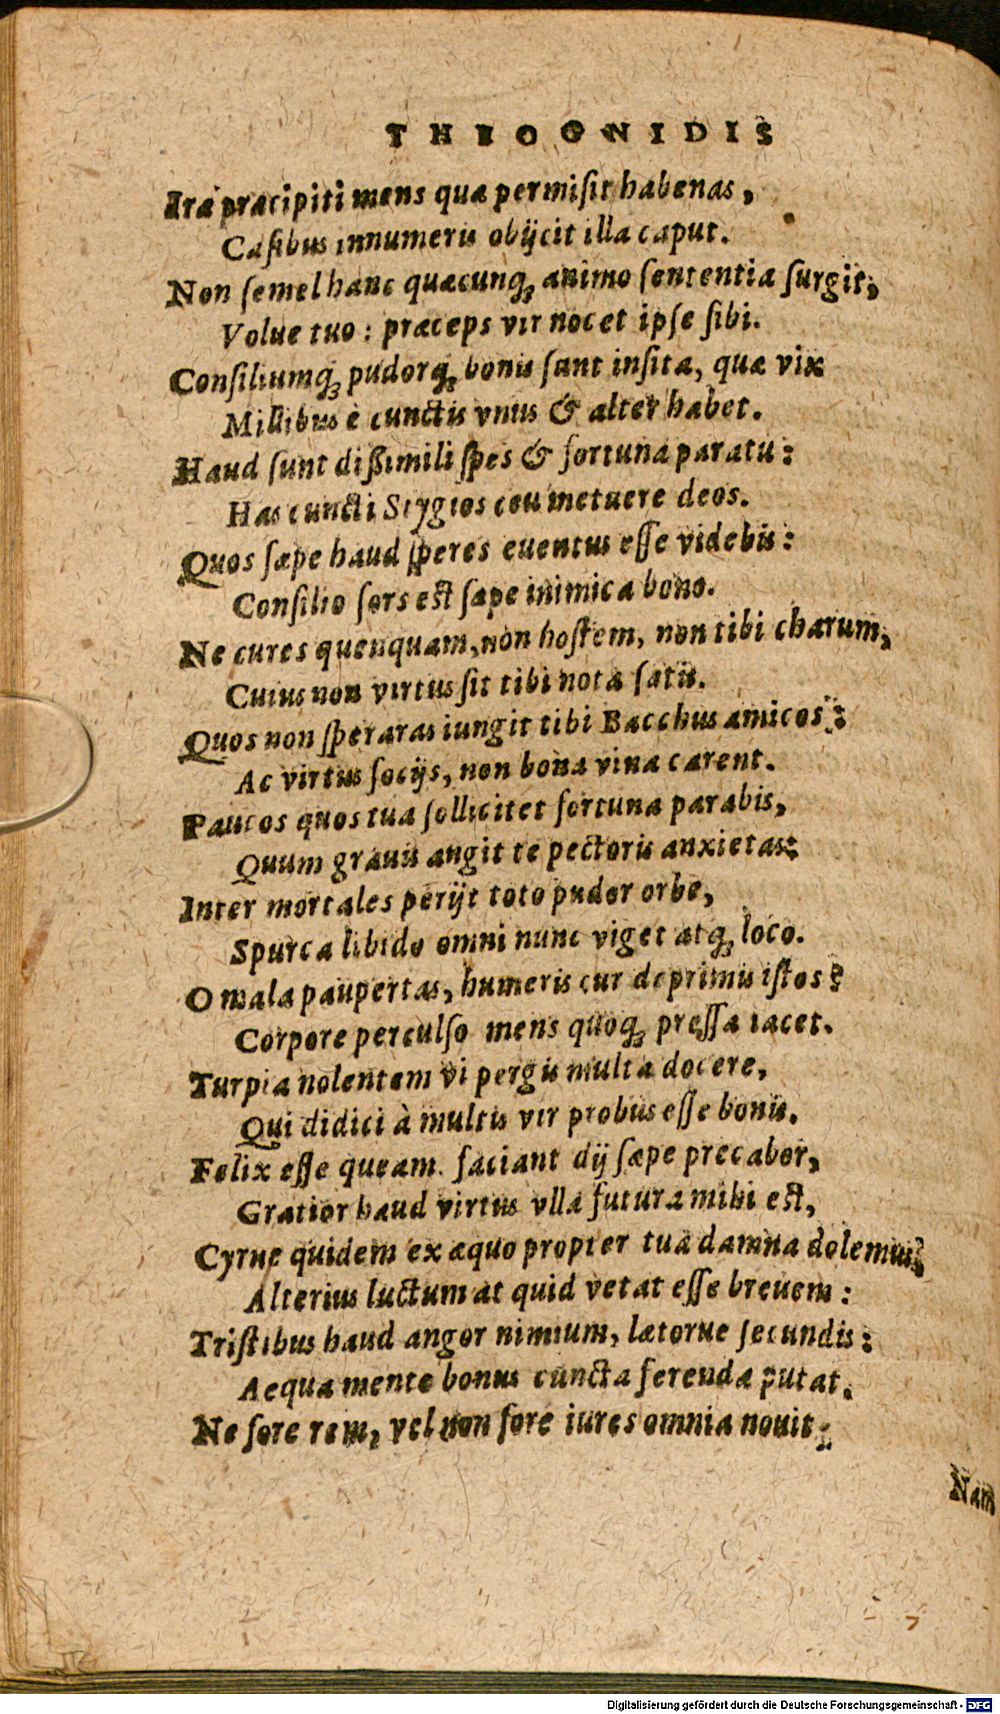 THEOGNIDIS
Iræ præcipiti mens quæ permiſit habenas,
Caſibus innumeris obijcit illa caput.
Non ſemel hanc quæcunq́; animo ſententia ſurgit,
Volue tuo: præceps vir nocet ipſe ſibi.
Conſiliumq́; pudorq́; bonis ſunt inſita, quæ vix
Millibus è cunctis vnus & alter habet.
Haud ſunt dißimili ſpes & fortuna paratu:
Has cuncti Stygios ceu metuere deos.
Quos ſæpe haud ſperes euentus eſſe videbis:
Conſilio ſors eſt ſæpe inimica bono.
Ne cures quenquam, non hoſtem, non tibi charum,
Cuius non virtus ſit tibi nota ſatis.
Quos non ſperaras iungit tibi Bacchus amicos:
Ac virtus ſocijs, non bona vina carent.
Paucos quos tua ſollicitet fortuna parabis,
Quum grauis angit te pectoris anxietas:
Inter mortales perijt toto pudor orbe,
Spurca libido omni nunc viget atq́; loco.
O mala paupertas, humeris cur deprimis iſtos?
Corpore perculſo mens quoq́; preſſa iacet.
Turpia nolentem vi pergis multa docere,
Qui didici à multis vir probus eſſe bonis.
Felix eſſe queam. faciant dij ſæpe precabor,
Gratior haud virtus vlla futura mihi eſt,
Cyrne quidem ex æquo propter tua damna dolemus,
Alterius luctum at quid vetat eſſe breuem:
Triſtibus haud angor nimium, lætorue ſecundis:
Aequa mente bonus cuncta ferenda putat.
Ne fore rem, vel non fore iures omnia nouit:
Nam
Digitalisierung gefördert durch die Deutsche Forschungsgemeinschaft - DFG